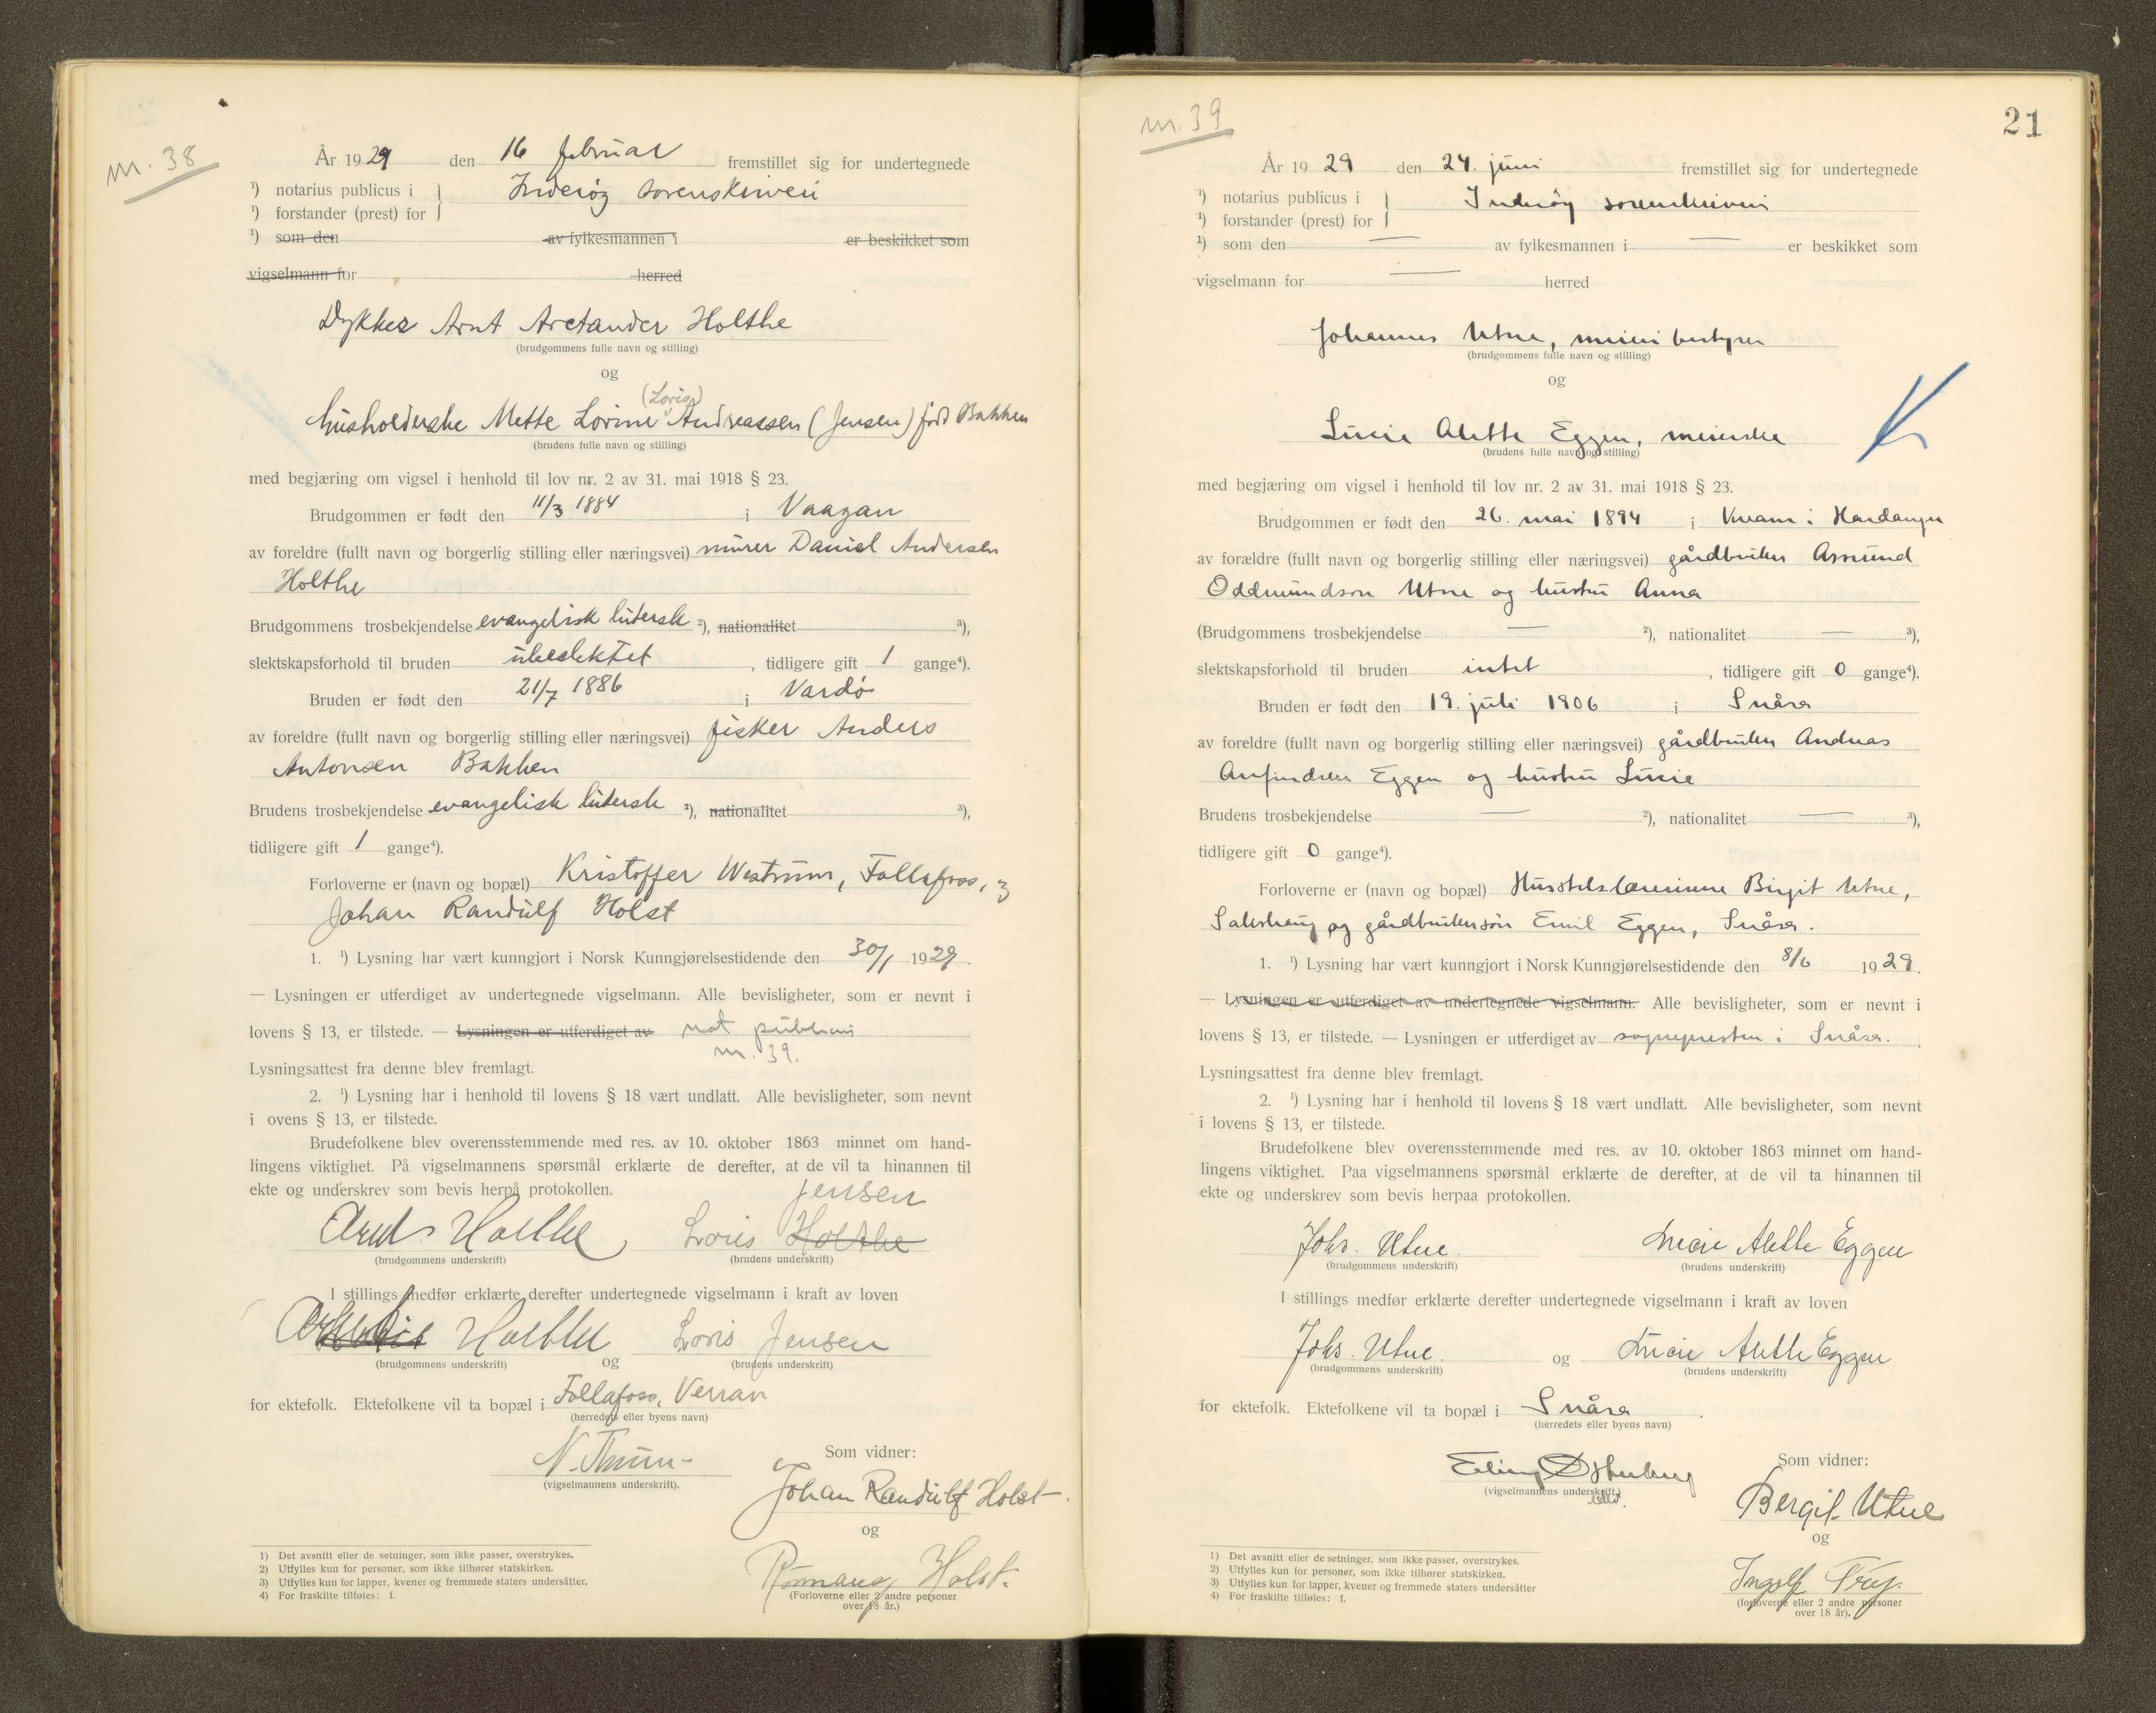 nr. 38
År 1929 den 16 februar fremstillet sig for undertegnede
¹) notarius publicus i } Inderøy sorenskriveri
¹) forstander (prest) for
¹) som den av fylkesmannen i er beskikket som
vigselmann for herred
Dykker Arnt Arctander Holthe
(brudgommens fulle navn og stilling)
og
(Loris)
husholderske Mette Lorine Andreassen (Jensen) født Bakken
(brudens fulle navn og stilling)
med begjæring om vigsel i henhold til lov nr. 2 av 31. mai 1918 § 23.
Brudgommen er født den 11/3 1884 i Vaagan
av foreldre (fullt navn og borgerlig stilling eller næringsvei) murer Daniel Andersen
Holthe
Brudgommens trosbekjendelse evangelisk lutersk ²), nationalitet ³),
slektskapsforhold til bruden ubeslektet, tidligere gift 1 gange⁴).
Bruden er født den 21/7 1886 i Vardø
av foreldre (fullt navn og borgerlig stilling eller næringsvei) fisker Anders
Antonsen Bakken
Brudens trosbekjendelse evangelisk lutersk ²), nationalitet ³),
tidligere gift 1 gange⁴).
Forloverne er (navn og bopæl) Kristoffer Westrum, Follafoss, og
Johan Randulf Holst
1. ¹) Lysning har vært kunngjort i Norsk Kunngjørelsestidende den 30/1 1929.
— Lysningen er utferdiget av undertegnede vigselmann. Alle bevisligheter, som er nevnt i
lovens § 13, er tilstede. — Lysningen er utferdiget av not publicus
nr. 39.
Lysningsattest fra denne blev fremlagt.
2. ¹) Lysning har i henhold til lovens § 18 vært undlatt. Alle bevisligheter, som nevnt
i ovens § 13, er tilstede.
Brudefolkene blev overensstemmende med res. av 10. oktober 1863 minnet om hand-
lingens viktighet. På vigselmannens spørsmål erklærte de derefter, at de vil ta hinannen til
ekte og underskrev som bevis herpå protokollen.
Jensen
Arnt Holthe Loris Holthe
(brudgommens underskrift) (brudens underskrift)
I stillings medfør erklærte derefter undertegnede vigselmann i kraft av loven
Holthe og Loris Jensen
(brudgommens underskrift) (brudens underskrift)
for ektefolk. Ektefolkene vil ta bopæl i Follafoss, Verran
(herredets eller byens navn)
N. Thrum
(vigselmannens underskrift).
Som vidner:
Johan Randulf Holst
og
Romaug Holst.
(Forloverne eller 2 andre personer
over 18 år.)
1) Det avsnitt eller de setninger, som ikke passer, overstrykes.
2) Utfylles kun for personer, som ikke tilhører statskirken.
3) Utfylles kun for lapper, kvener og fremmede staters undersåtter.
4) For fraskilte tilføies: f.
nr. 39
21
År 1929 den 24. juni fremstillet sig for undertegnede
¹) notarius publicus i } Inderøy sorenskriveri
¹) forstander (prest) for
¹) som den — av fylkesmannen i — er beskikket som
vigselmann for — herred
Johannes Utne, meieribestyrer
(brudgommens fulle navn og stilling)
og
Lucie Alette Eggen, meierske
(brudens fulle navn og stilling)
med begjæring om vigsel i henhold til lov nr. 2 av 31. mai 1918 § 23.
Brudgommen er født den 26. mai 1894 i Kvam i Hardanger
av forældre (fullt navn og borgerlig stilling eller næringsvei) gårdbruker Asmund
Oddmundson Utne og hustru Anna
(Brudgommens trosbekjendelse — ²), nationalitet — ³),
slektskapsforhold til bruden intet, tidligere gift 0 gange⁴).
Bruden er født den 19. juli 1906 i Snåsa
av foreldre (fullt navn og borgerlig stilling eller næringsvei) gårdbruker Andreas
Anfindsen Eggen og hustru Lucie
Brudens trosbekjendelse — ²), nationalitet — ³),
tidligere gift 0 gange⁴).
Forloverne er (navn og bopæl) Husstelslærerinne Birgit Utne,
Sakshaug og gårdbrukersøn Emil Eggen, Snåsa.
1. ¹) Lysning har vært kunngjort i Norsk Kunngjørelsestidende den 8/6 1929.
— Lysningen er utferdiget av undertegnede vigselmann. Alle bevisligheter, som er nevnt i
lovens § 13, er tilstede. — Lysningen er utferdiget av sognepresten i Snåsa.
Lysningsattest fra denne blev fremlagt.
2. ¹) Lysning har i henhold til lovens § 18 vært undlatt. Alle bevisligheter, som nevnt
i lovens § 13, er tilstede.
Brudefolkene blev overensstemmende med res. av 10. oktober 1863 minnet om hand-
lingens viktighet. Paa vigselmannens spørsmål erklærte de derefter, at de vil ta hinannen til
ekte og underskrev som bevis herpaa protokollen.
Johs. Utne. Lucie Alette Eggen
(brudgommens underskrift) (brudens underskrift)
I stillings medfør erklærte derefter undertegnede vigselmann i kraft av loven
Johs. Utne. og Lucie Alette Eggen
(brudgommens underskrift) (brudens underskrift)
for ektefolk. Ektefolkene vil ta bopæl i Snåsa.
(herredets eller byens navn)
Erling Østerberg
(vigselmannens underskrift).
Som vidner:
Bergit Utne
og
Ingolf
(forloverne eller 2 andre personer
over 18 år).
1) Det avsnitt eller de setninger, som ikke passer, overstrykes.
2) Utfylles kun for personer, som ikke tilhører statskirken.
3) Utfylles kun for lapper, kvener og fremmede staters undersåtter
4) For fraskilte tilføies: f.